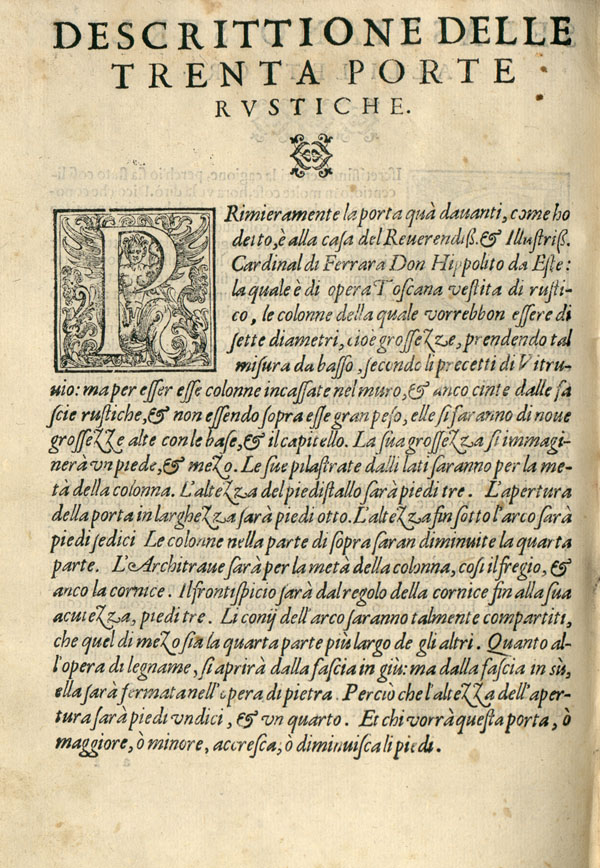 DESCRITTIONE DELLE
TRENTA PORTE
RVSTICHE.
PRimieramente la porta quà dauanti, come ho
detto, è alla casa del Reuerendiß. & Illustriß.
Cardinal di Ferrara Don Hippolito da Este:
la quale è di opera Toscana vestita di rusti-
co, le colonne della quale vorrebbon essere di
sette diametri, cioe grossezze, prendendo tal
misura da basso, secondo li precetti di Vitru-
uio: ma per esser esse colonne incassate nel muro, & anco cinte dalle fa
scie rustiche, & non essendo sopra esse gran peso, elle si faranno di noue
grossezze alte con le base, & il capitello. La sua grossezza si immagi-
nerà vn piede, & mezo. Le sue pilastrate dalli lati saranno per la me-
tà della colonna. L'altezza del piedistallo sarà piedi tre. L'apertura
della porta in larghezza sarà piedi otto. L'altezza fin sotto l'arco sarà
piedi sedici Le colonne nella parte di sopra saran diminuite la quarta
parte. L'Architraue sarà per la metà della colonna, cosi il fregio, &
anco la cornice. Il frontispicio sarà dal regolo della cornice fin alla sua
acutezza, piedi tre. Li conij dell'arco saranno talmente compartiti,
che quel di mezo sia la quarta parte più largo de gli altri. Quanto al-
l'opera di legname, si aprirà dalla fascia in giù: ma dalla fascia in sù,
ella sarà fermata nell'opera di pietra. Perciò che l'altezza dell'aper-
tura sarà piedi vndici, & vn quarto. Et chi vorrà questa porta, ò
maggiore, ò minore, accresca, ò diminuisca li piedi.